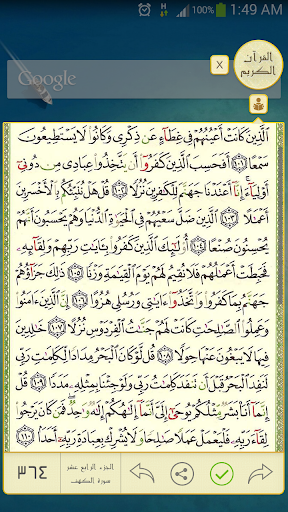 H 100% 1:49 AM
Google
X
القرآن
الكريم
ٱلَّذِينَ كَانَتْ أَعْيُنُهُمْ فِى غِطَآءٍ عَن ذِكْرِى وَكَانُوا۟ لَا يَسْتَطِيعُونَ
سَمْعًا ١٠١ أَفَحَسِبَ ٱلَّذِينَ كَفَرُوٓا۟ أَن يَتَّخِذُوا۟ عِبَادِى مِن دُونِىٓ
أَوْلِيَآءَ إِنَّآ أَعْتَدْنَا جَهَنَّمَ لِلْكَٰفِرِينَ نُزُلًا ١٠٢ قُلْ هَلْ نُنَبِّئُكُم بِٱلْأَخْسَرِينَ
أَعْمَٰلًا ١٠٣ ٱلَّذِينَ ضَلَّ سَعْيُهُمْ فِى ٱلْحَيَوٰةِ ٱلدُّنْيَا وَهُمْ يَحْسَبُونَ أَنَّهُمْ
يُحْسِنُونَ صُنْعًا ١٠٤ أُو۟لَٰٓئِكَ ٱلَّذِينَ كَفَرُوا۟ بِـَٔايَٰتِ رَبِّهِمْ وَلِقَآئِهِۦ
فَحَبِطَتْ أَعْمَٰلُهُمْ فَلَا نُقِيمُ لَهُمْ يَوْمَ ٱلْقِيَٰمَةِ وَزْنًا ١٠٥ ذَٰلِكَ جَزَآؤُهُمْ
جَهَنَّمُ بِمَا كَفَرُوا۟ وَٱتَّخَذُوٓا۟ ءَايَٰتِى وَرُسُلِى هُزُوًا ١٠٦ إِنَّ ٱلَّذِينَ ءَامَنُوا۟
وَعَمِلُوا۟ ٱلصَّٰلِحَٰتِ كَانَتْ لَهُمْ جَنَّٰتُ ٱلْفِرْدَوْسِ نُزُلًا ١٠٧ خَٰلِدِينَ
فِيهَا لَا يَبْغُونَ عَنْهَا حِوَلًا ١٠٨ قُل لَّوْ كَانَ ٱلْبَحْرُ مِدَادًا لِّكَلِمَٰتِ رَبِّى
لَنَفِدَ ٱلْبَحْرُ قَبْلَ أَن تَنفَدَ كَلِمَٰتُ رَبِّى وَلَوْ جِئْنَا بِمِثْلِهِۦ مَدَدًا ١٠٩ قُلْ
إِنَّمَآ أَنَا۠ بَشَرٌ مِّثْلُكُمْ يُوحَىٰٓ إِلَىَّ أَنَّمَآ إِلَٰهُكُمْ إِلَٰهٌ وَٰحِدٌ فَمَن كَانَ يَرْجُوا۟
لِقَآءَ رَبِّهِۦ فَلْيَعْمَلْ عَمَلًا صَٰلِحًا وَلَا يُشْرِكْ بِعِبَادَةِ رَبِّهِۦٓ أَحَدًۢا ١١٠
٣٦٤
الجزء الرابع عشر
سورة الكهف